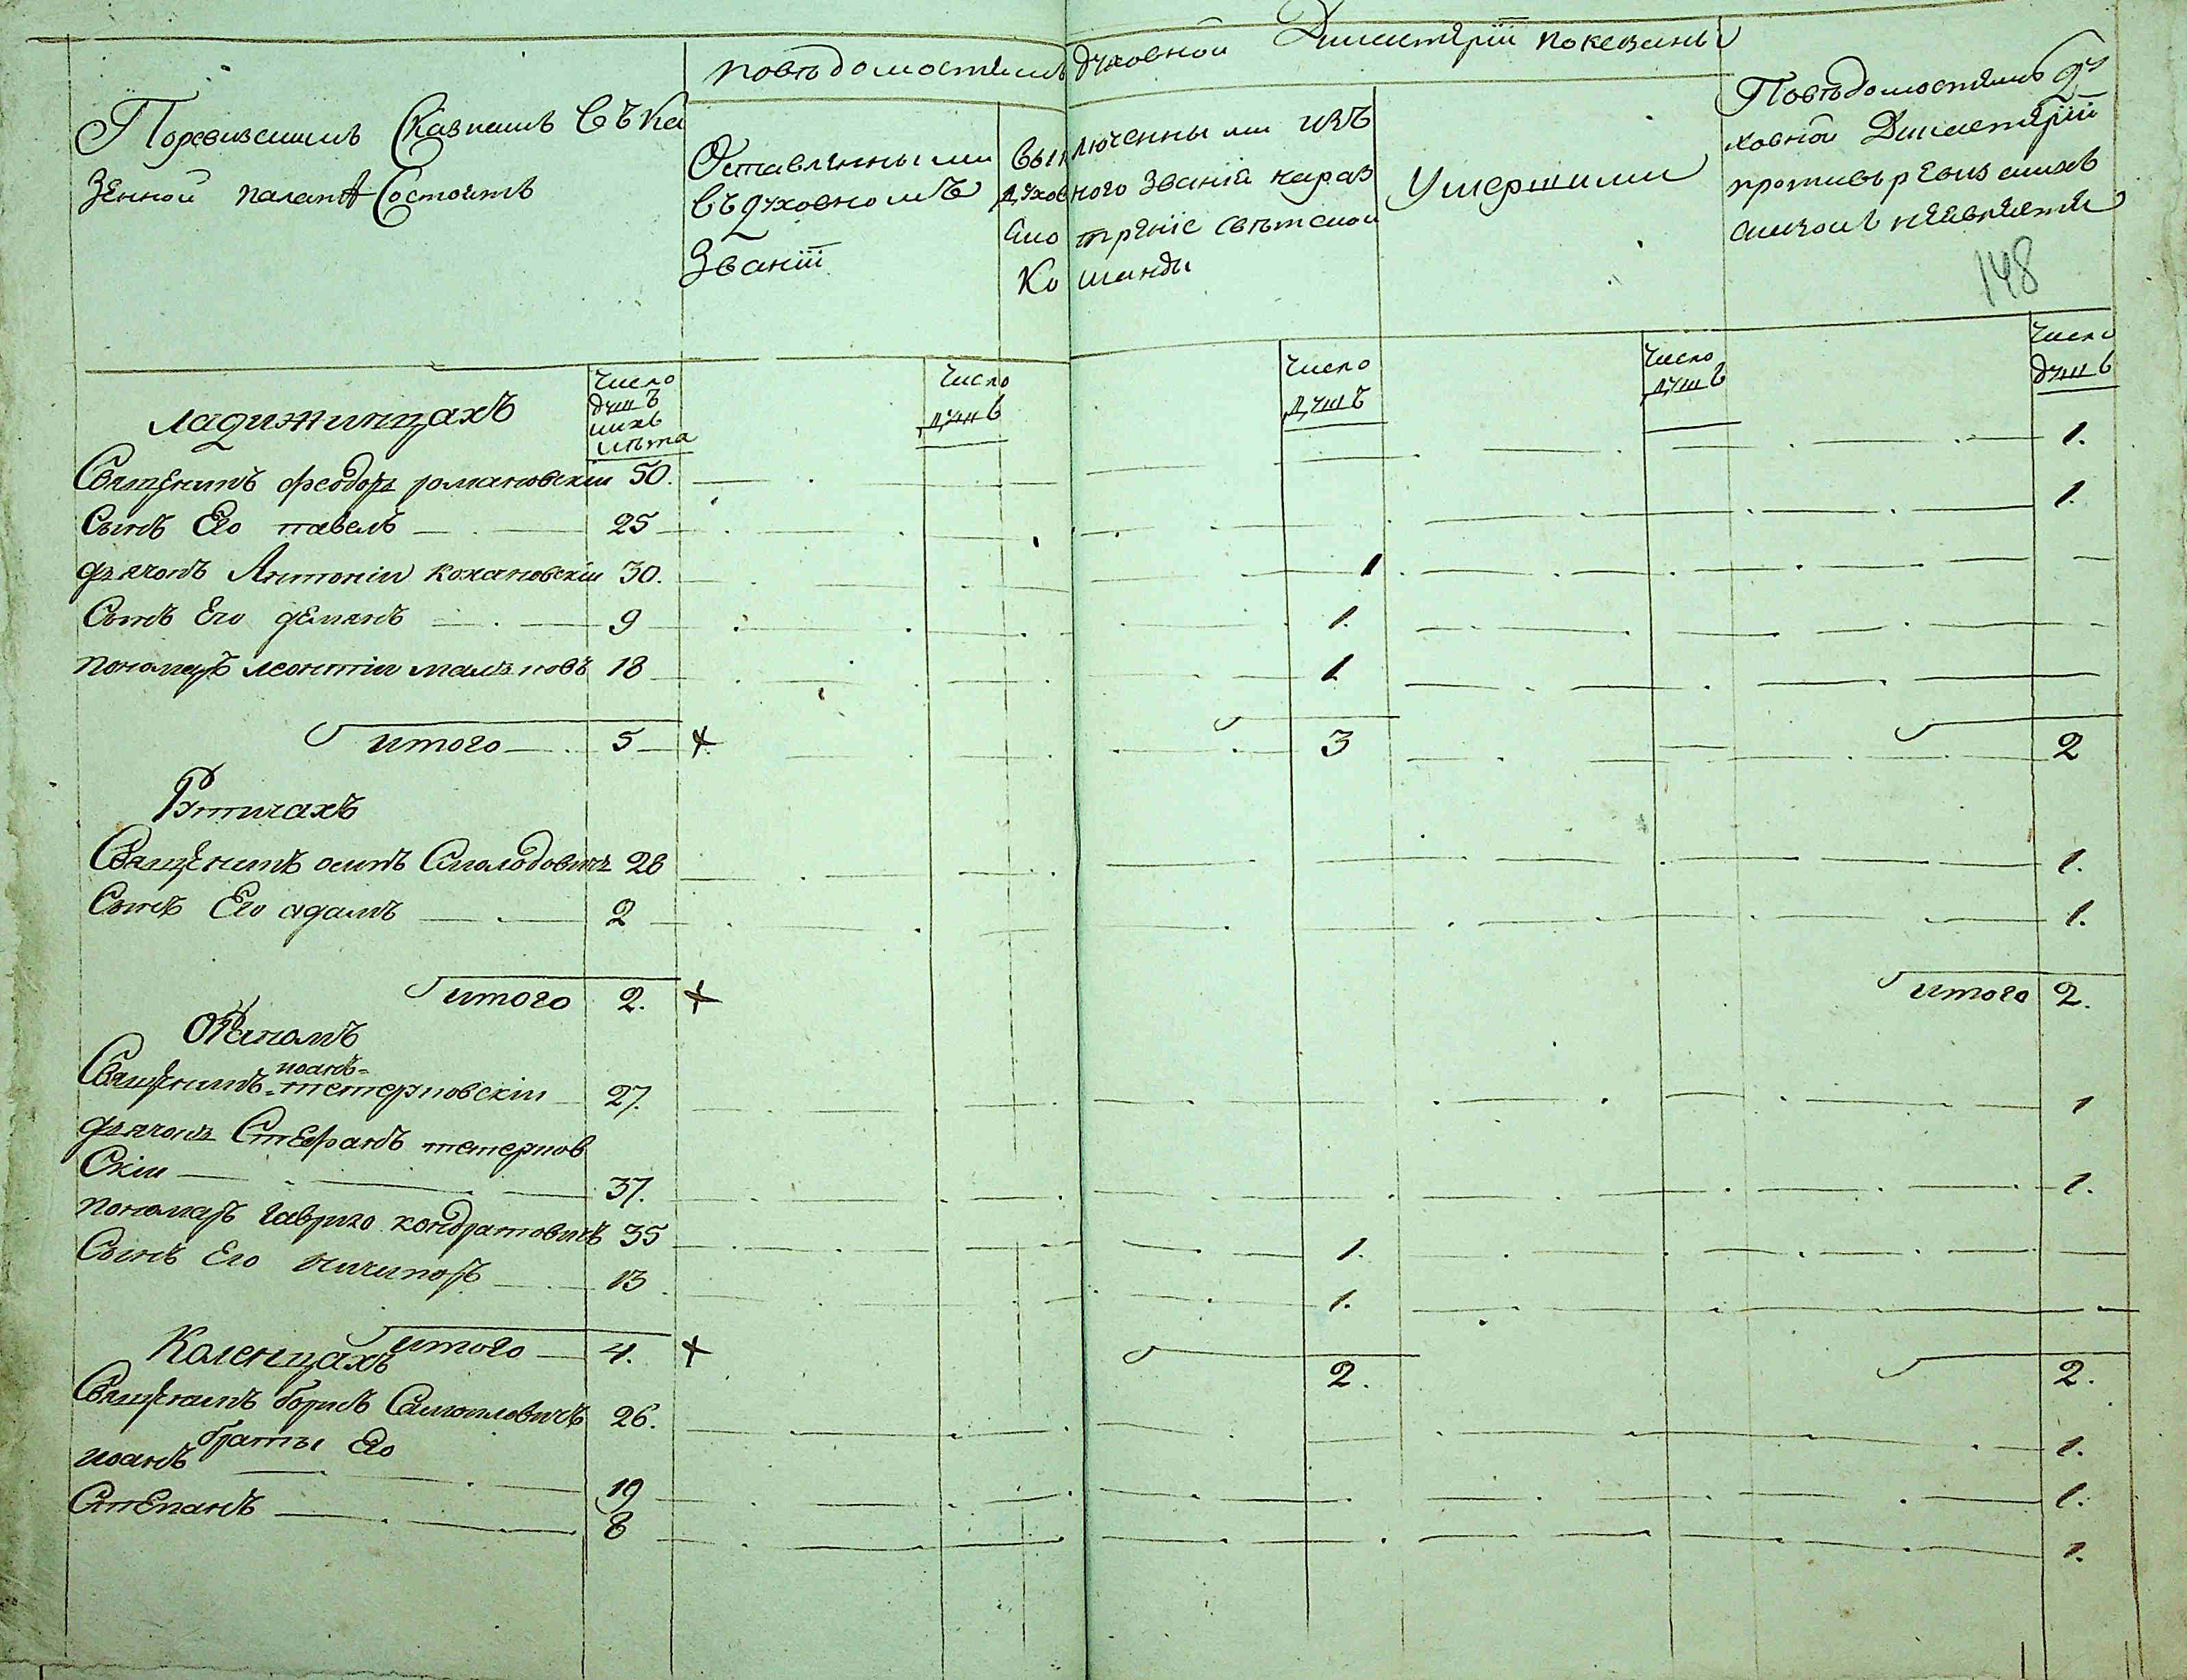 поведомостямъ духовной Дикастеріи показаны
Поревизскимъ Сказкамъ Въ Ка
зенной палатѣ Состоитъ
Оставленными
въ духовномъ
Званіи
Выключенными изъ
духовного званія наразс
мотреніе свѣтской
Команды
Умершими
Поведомостямъ ду
ховной Дикастеріи
противъ ревизскихъ
сказокъ неявляется
148
Число
душъ
ихъ
лѣта
Число
душъ
Число
душъ
Число
душъ
Число
душъ
ладижичахъ
Священикъ феодоръ романовскіи 50. 1.
Сынъ Его павелъ 25 1.
дьячокъ Антоніи кохановскіи 30. 1
Сынъ Его демянъ 9 1.
пономаръ леонтіи 18 1
итого 5 3 2
Рутичахъ
Священикъ осипъ Смолодовичъ 28 1.
Сынъ Его адамъ 2 1.
итого 2. итого 2.
иоанъ
Священикъ тетерковскіи 27. 1
дьячокъ Стефанъ тетерков
Скіи 37. 1.
пономаръ гаврило кондратовичъ 35 1.
Сынъ Его ничипоръ 13 1.
итого 4. 2. 2.
Коленцахъ
Священикъ борисъ Самоиловичъ 26. 1.
браты Его
иоанъ 19 1.
Степанъ 8 1.